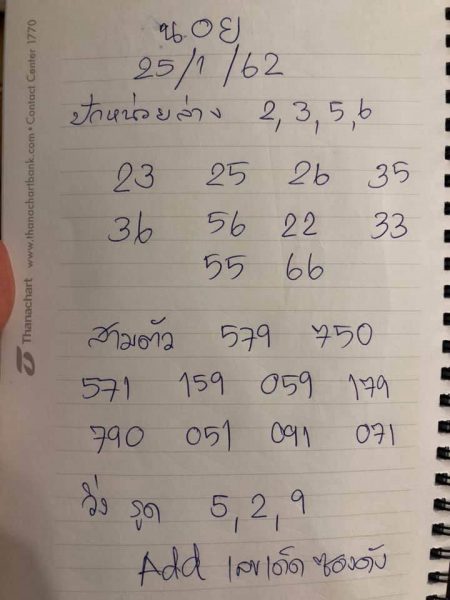 น.อย
25/1/62
ปักหน่วยล่าง 2,3,5,6
23 25 26 35
36 56 22 33
55 66
สามตัว 579 750
571 159 059 179
790 051 091 071
วิ่ง รูด 5,2,9
Add เลขเด็ดซองดัง
Thanachart www.thanachartbank.com • Contact Center 1770